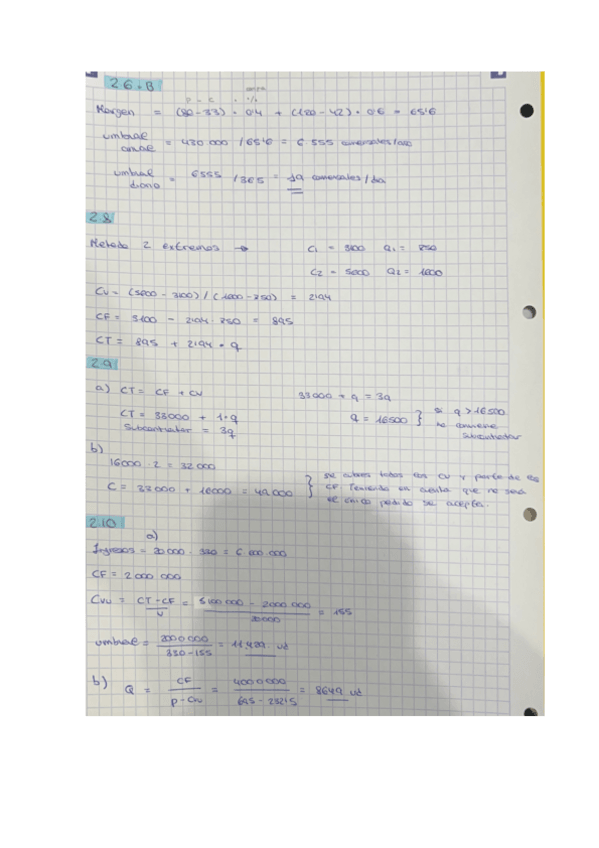 2.6.B
P - C
Margen = (80-33) · 0'4 + (120-42) · 0'6 = 65'6
umbral anual = 430 000 / 65'6 = 6.555 comensales/año
umbral diario = 6555 / 365 = 19 comensales/día
2.8
Metodo 2 extremos → C1 = 3100 Q1 = 250
C2 = 5000 Q2 = 1000
CV = (5000 - 3100) / (1000 - 250) =
CF = 3100 - 250 = 895
CT = 895 + · q
2.9
a) CT = CF + CV 33000 + q = 3q
CT = 33000 + 1·q q = 16500 } si q > 16500
Subcontratar = 3q no conviene
subcontratar
b)
16000 · 2 = 32 000
C = 33000 + 16000 = 49 000 } se cubren todos los CV y parte de los
CF. Teniendo en cuenta que no será
el único pedido se acepta.
2.10
a)
Ingresos = 20 000 · 330 = 6 600 000
CF = 2 000 000
CVu = CT - CF / U = 5 100 000 - 2000 000 / 20000 = 155
umbral = 2000 000 / 330 - 155 = 11,429 ud
b) Q = CF / P - Cvu = 4000 000 / 695 - 232'5 = 8649 ud